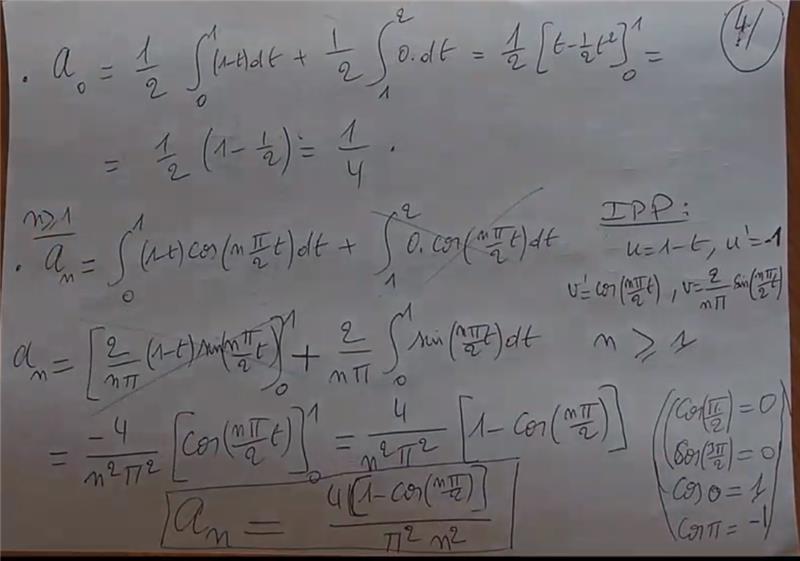 4/
. a₀ = 1/2 ∫₀¹ (1-t)dt + 1/2 ∫₁² 0.dt = 1/2 [t - 1/2 t²]₀¹ =
= 1/2 (1 - 1/2) = 1/4 .
n⩾1
. aₙ = ∫₀¹ (1-t) cos(n π/2 t)dt + ∫₁² 0. cos(nπ/2 t)dt
IPP :
u = 1-t, u' = -1
v' = cos(nπ/2 t), v = 2/nπ sin(nπ/2 t)
aₙ = [2/nπ (1-t) sin(nπ/2 t)]₀¹ + 2/nπ ∫₀¹ sin(nπ/2 t)dt n ⩾ 1
= -4/n²π² [cos(nπ/2 t)]₀¹ = 4/n²π² [1 - cos(nπ/2)]
aₙ = 4[1 - cos(nπ/2)]/π² n²
cos(π/2) = 0
cos(3π/2) = 0
cos 0 = 1
cos π = -1